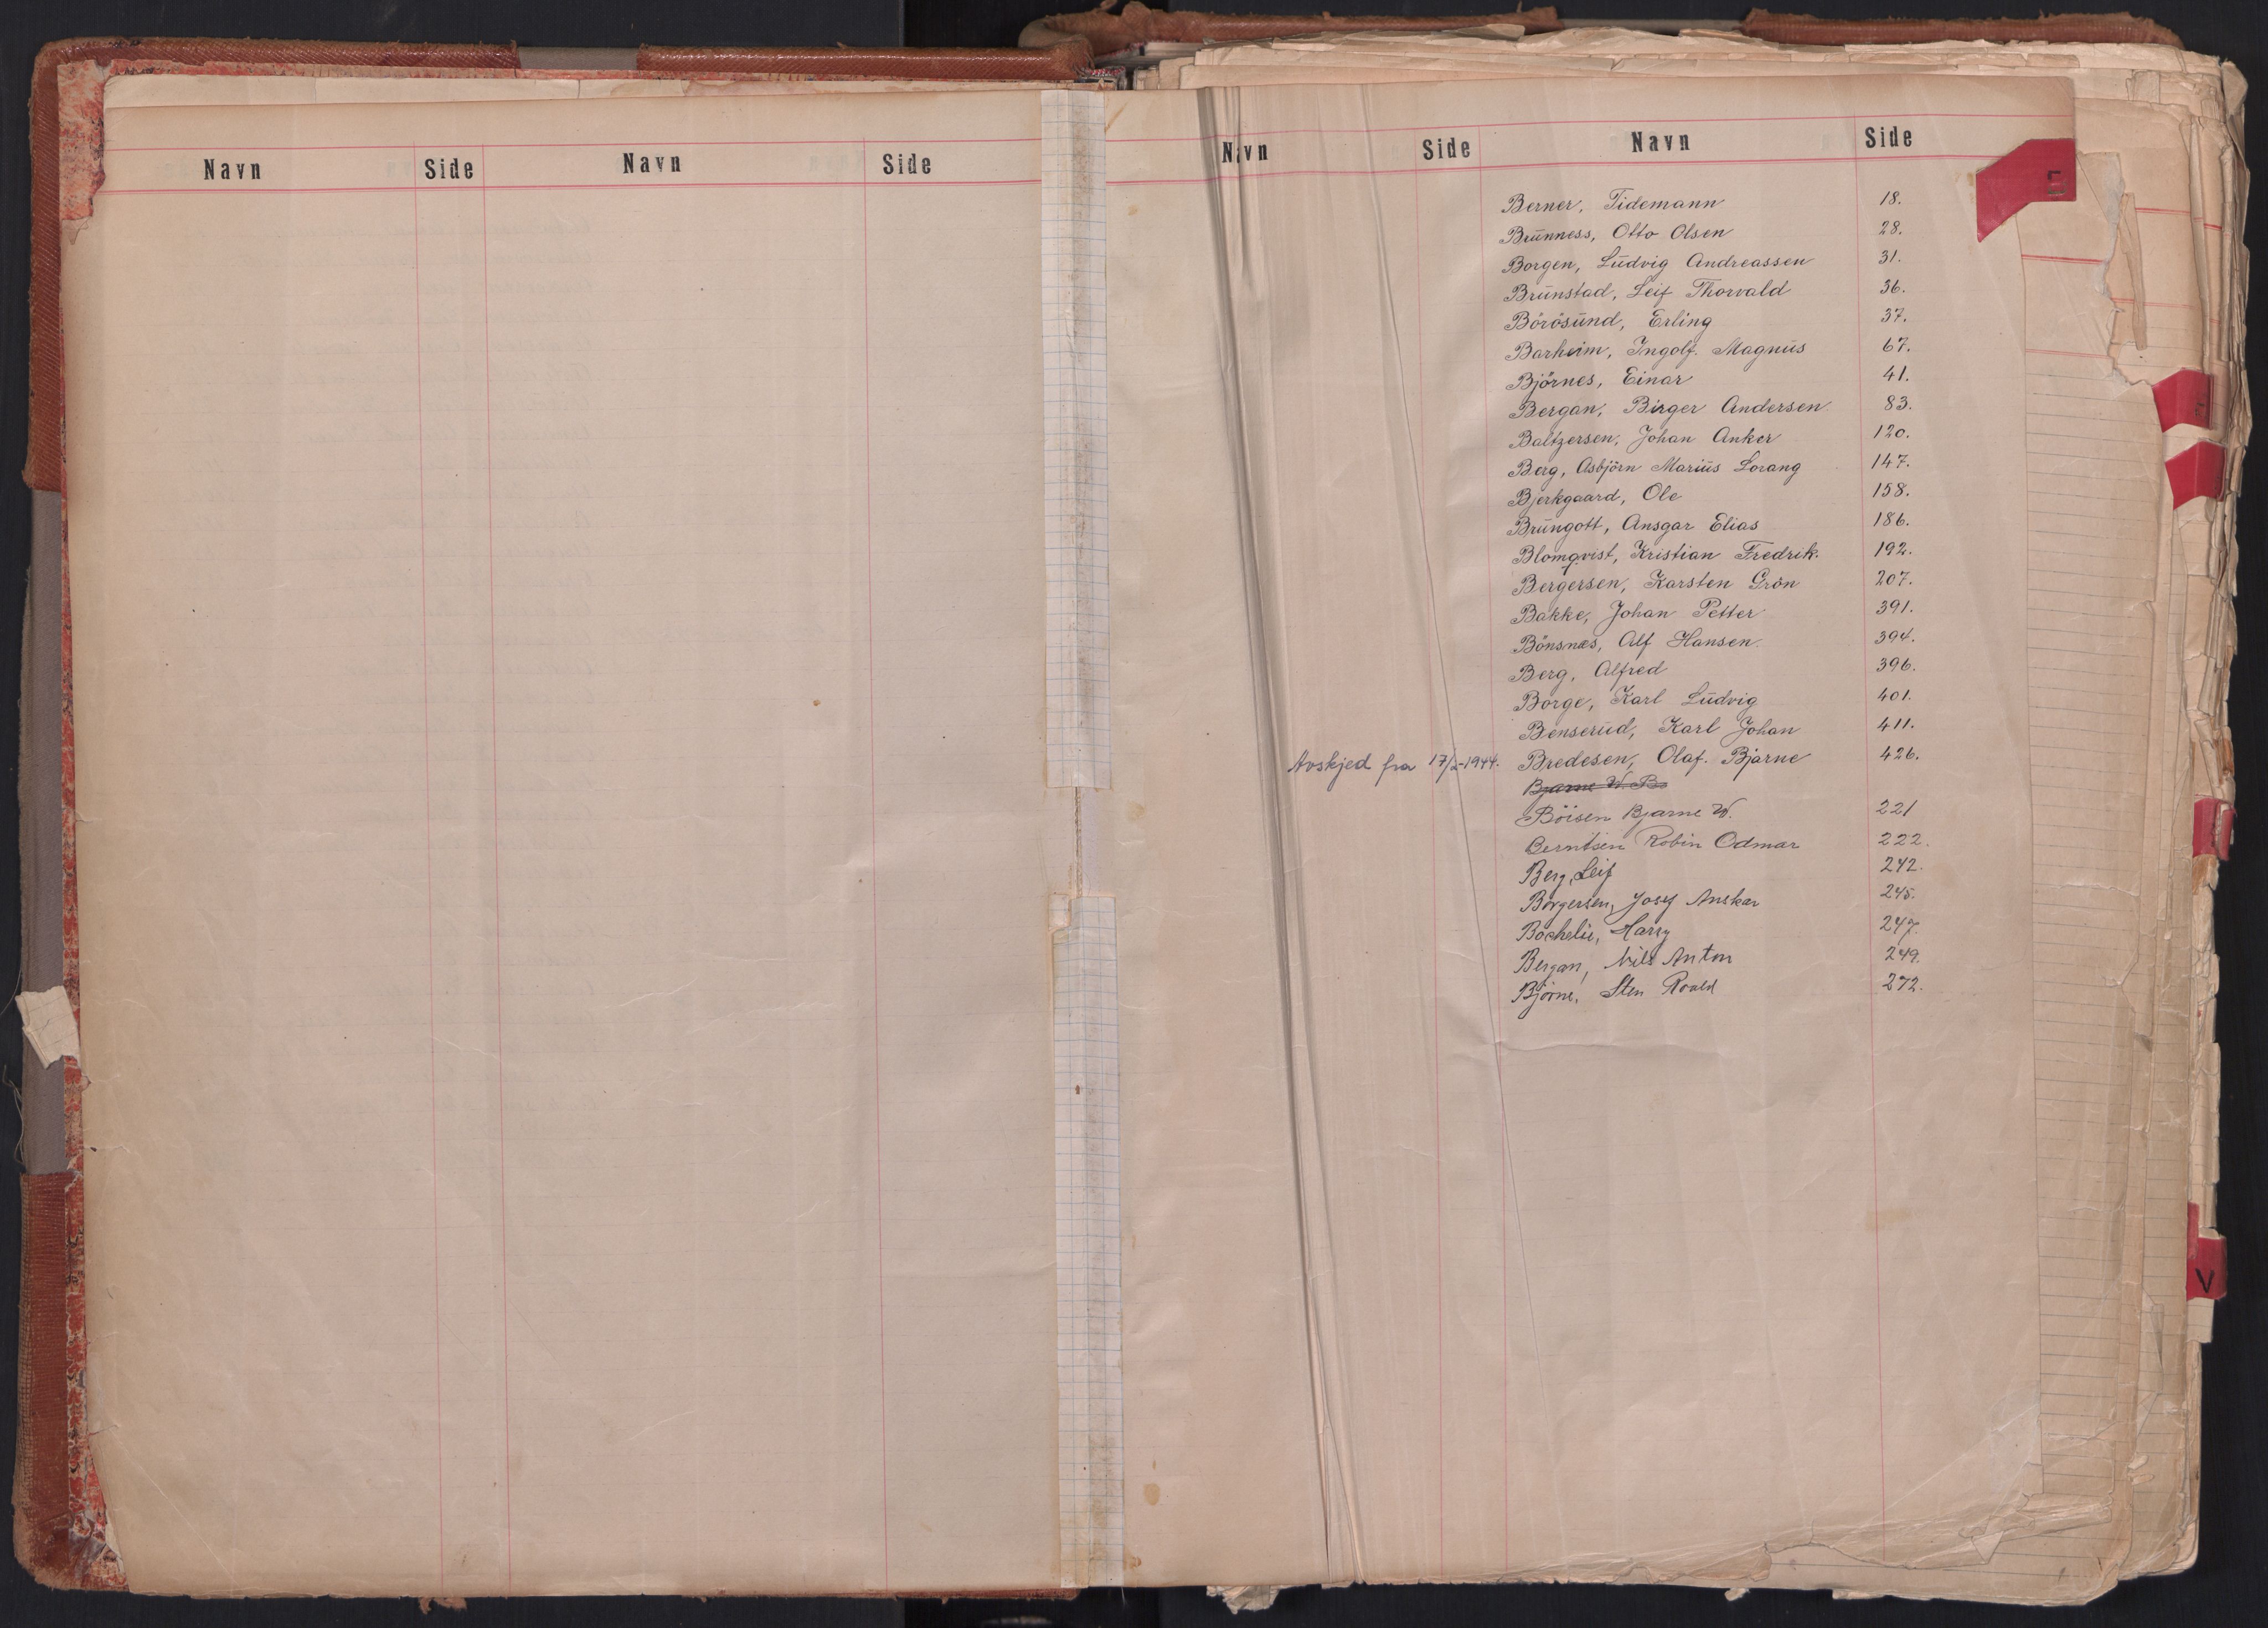 Navn Side Navn Side
Navn Side Navn Side
Berner, Tidemann 18.
Brünness, Otto Olsen 28.
Borgen, Lüdvig Andreassen 31.
Brünstad, Leif Thorvald 36.
Börösünd, Erling 37.
Barheim, Ingolf. Magnüs 67.
Björnes, Einar 41.
Bergan, Birger Andersen 83.
Baltzersen, Johan Anker 120.
Berg, Asbjörn Mariüs Lorang 147.
Bjerkgaard, Ole 158.
Brüngott, Ansgar Elias 186.
Blomqvist, Kristian Fredrik. 192.
Bergersen, Karsten Grön 207.
Bakke, Johan Petter 391.
Bönsnæs, Alf Hansen. 394.
Berg, Alfred 396.
Borge, Karl Lüdvig 401.
Benserüd, Karl Johan 411.
Avskjed fra 17/2-1944. Bredesen, Olaf. Bjarne 426.
Bjarne W. B
Böisen Bjarne W. 221
Berntsen Robin Odmar 222.
Berg, Leif 242.
Borgersen, Josef Anskar 245.
Bachelie, Harry 247.
Bergan, Nils Anton 249.
Bjørne, Sten Roald 272.
V